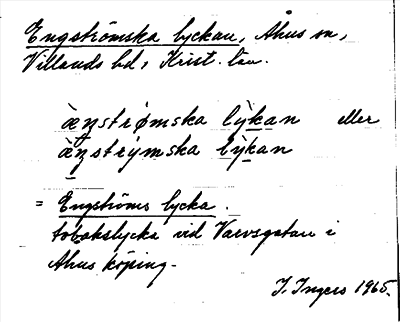 Engströmska lyckan, Åhus sn,
Villands hd, Krist. län.
ànstrømska lỳkan eller
ànstrymska lỳkan
= Engströms lycka.
tobakslycka vid Varvsgatan i
Åhus köping.
I. Ingers 1965.